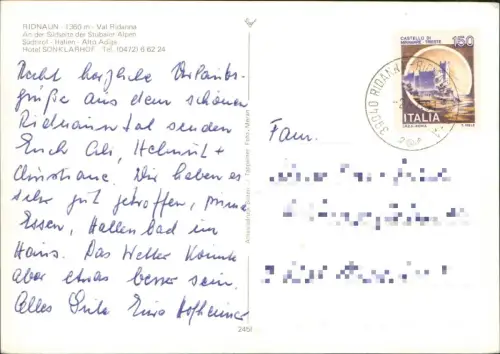 RIDNAUN · 1360 m · Val Ridanna
An der Südseite der Stubaier Alpen
Südtirol · Italien · Alto Adige
Hotel SONKLARHOF · Tel. (0472) 6 62 24
Recht herzliche Urlaubs-
grüße aus dem schönen
Ridnauntal senden
Euch Helmut +
Christiane. Wir haben es
sehr gut getroffen, prima
Essen, Hallenbad im
Haus. Das Wetter könnte
aber etwas besser sein.
Alles Gute Eure Hofheimer
CASTELLO DI
MIRAMARE - TRIESTE
150
ITALIA
39040 RIDANNA
Fam.